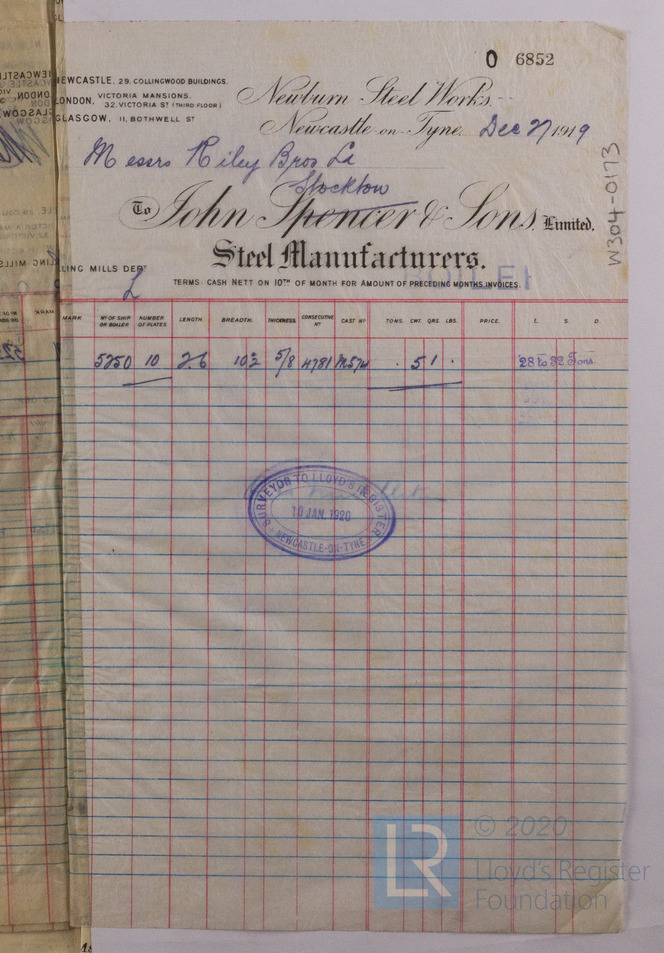 O 6852
NEWCASTLE, 29. COLLINGWOOD BUILDINGS.
LONDON, VICTORIA MANSIONS.
32. VICTORIA ST (THIRD FLOOR)
GLASGOW, 11, BOTHWELL ST
Newburn Steel Works
Newcastle-on-Tyne, Dec 27 1919
Messrs Riley Bros Ld
Stockton
To John Spencer & Sons, Limited.
Steel Manufacturers.
LLING MILLS DEPT
BOILER
TERMS CASH NETT ON 10TH OF MONTH FOR AMOUNT OF PRECEDING MONTHS INVOICES
MARK Nº OF SHIP OR BOILER NUMBER OF PLATES LENGTH. BREADTH. THICKNESS CONSECUTIVE Nº CAST Nº TONS. CWT. QRS. LBS. PRICE. £. S. D.
5250 10 2.6 10½ 5/8 4781 M574 . 5 1 . 28 to 32 Tons
SURVEYOR TO LLOYD'S REGISTER
10 JAN. 1920
NEWCASTLE-ON-TYNE
W304-0173
LR
© 2020
Lloyd's Register
Foundation